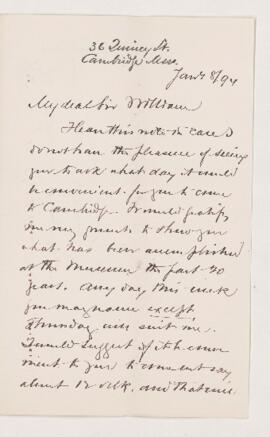 36 Quincy St.
Cambridge Mass.
Jany 8/94
My dear Sir William
I leave this note in case I
do not have the pleasure of seeing
you to ask what day it would
be convenient for you to come
to Cambridge. It would gratify
me very greatly to show you
what has been accomplished
at the Museum the past 20
years. Any day this week
you may name except
Thursday will suit me.
I would suggest if it be conve
nient to you to come out say
about 12 o'clk. and that will